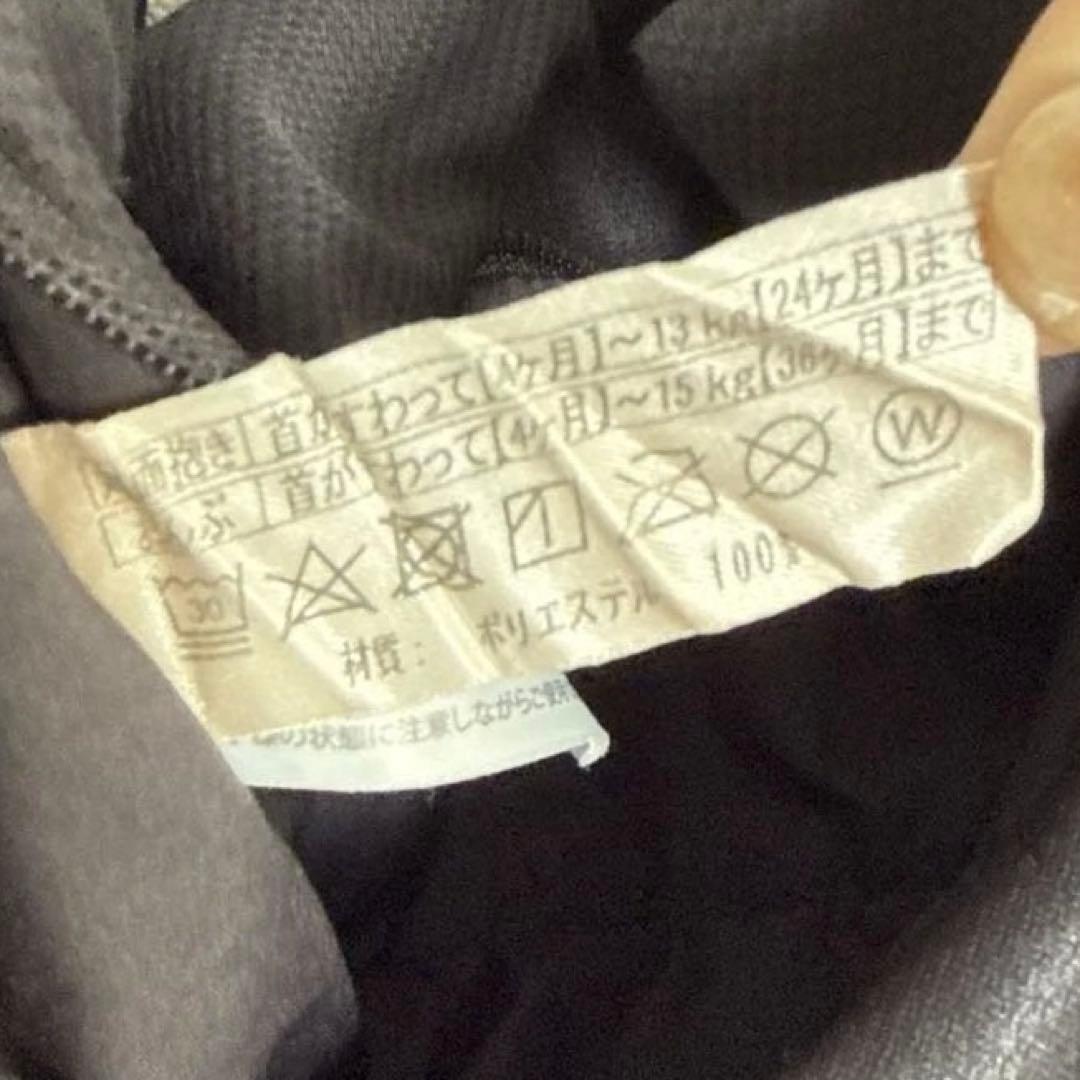 対面抱き 首がすわって【4ヶ月】～13 kg【24ケ月】まで
おんぶ 首がすわって【4ヶ月】～15 kg【36ケ月】まで
30 W
材質： ポリエステル 100%
の状態に注意しながらご使用